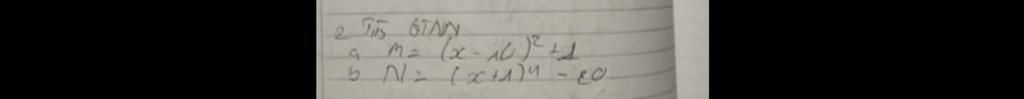 2 Tìm GTNN
a M = (x - 10)² + 1
b N = (x+1)⁴ - 20